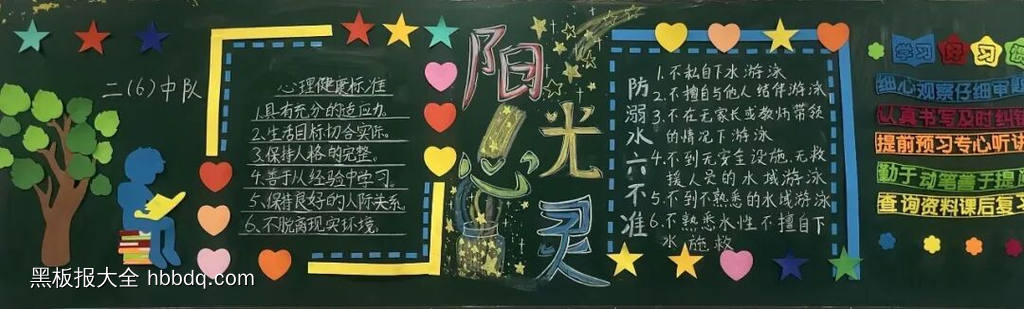 二(6)中队
心理健康标准
1.具有充分的适应力。
2.生活目标切合实际。
3.保持人格的完整。
4.善于从经验中学习。
5.保持良好的人际关系
6.不脱离现实环境.
阳
光
心
灵
防溺水六不准
1.不私自下水游泳
2.不擅自与他人结伴游泳
3.不在无家长或教师带领
的情况下游泳
4.不到无安全设施.无救
援人员的水域游泳
5.不到不熟悉的水域游泳
6.不熟悉水性不擅自下
水施救
学习好习
细心观察仔细审题
认真书写及时纠错
提前预习专心听讲
勤于动笔善于提
查询资料课后复习
黑板报大全 hbbdq.com